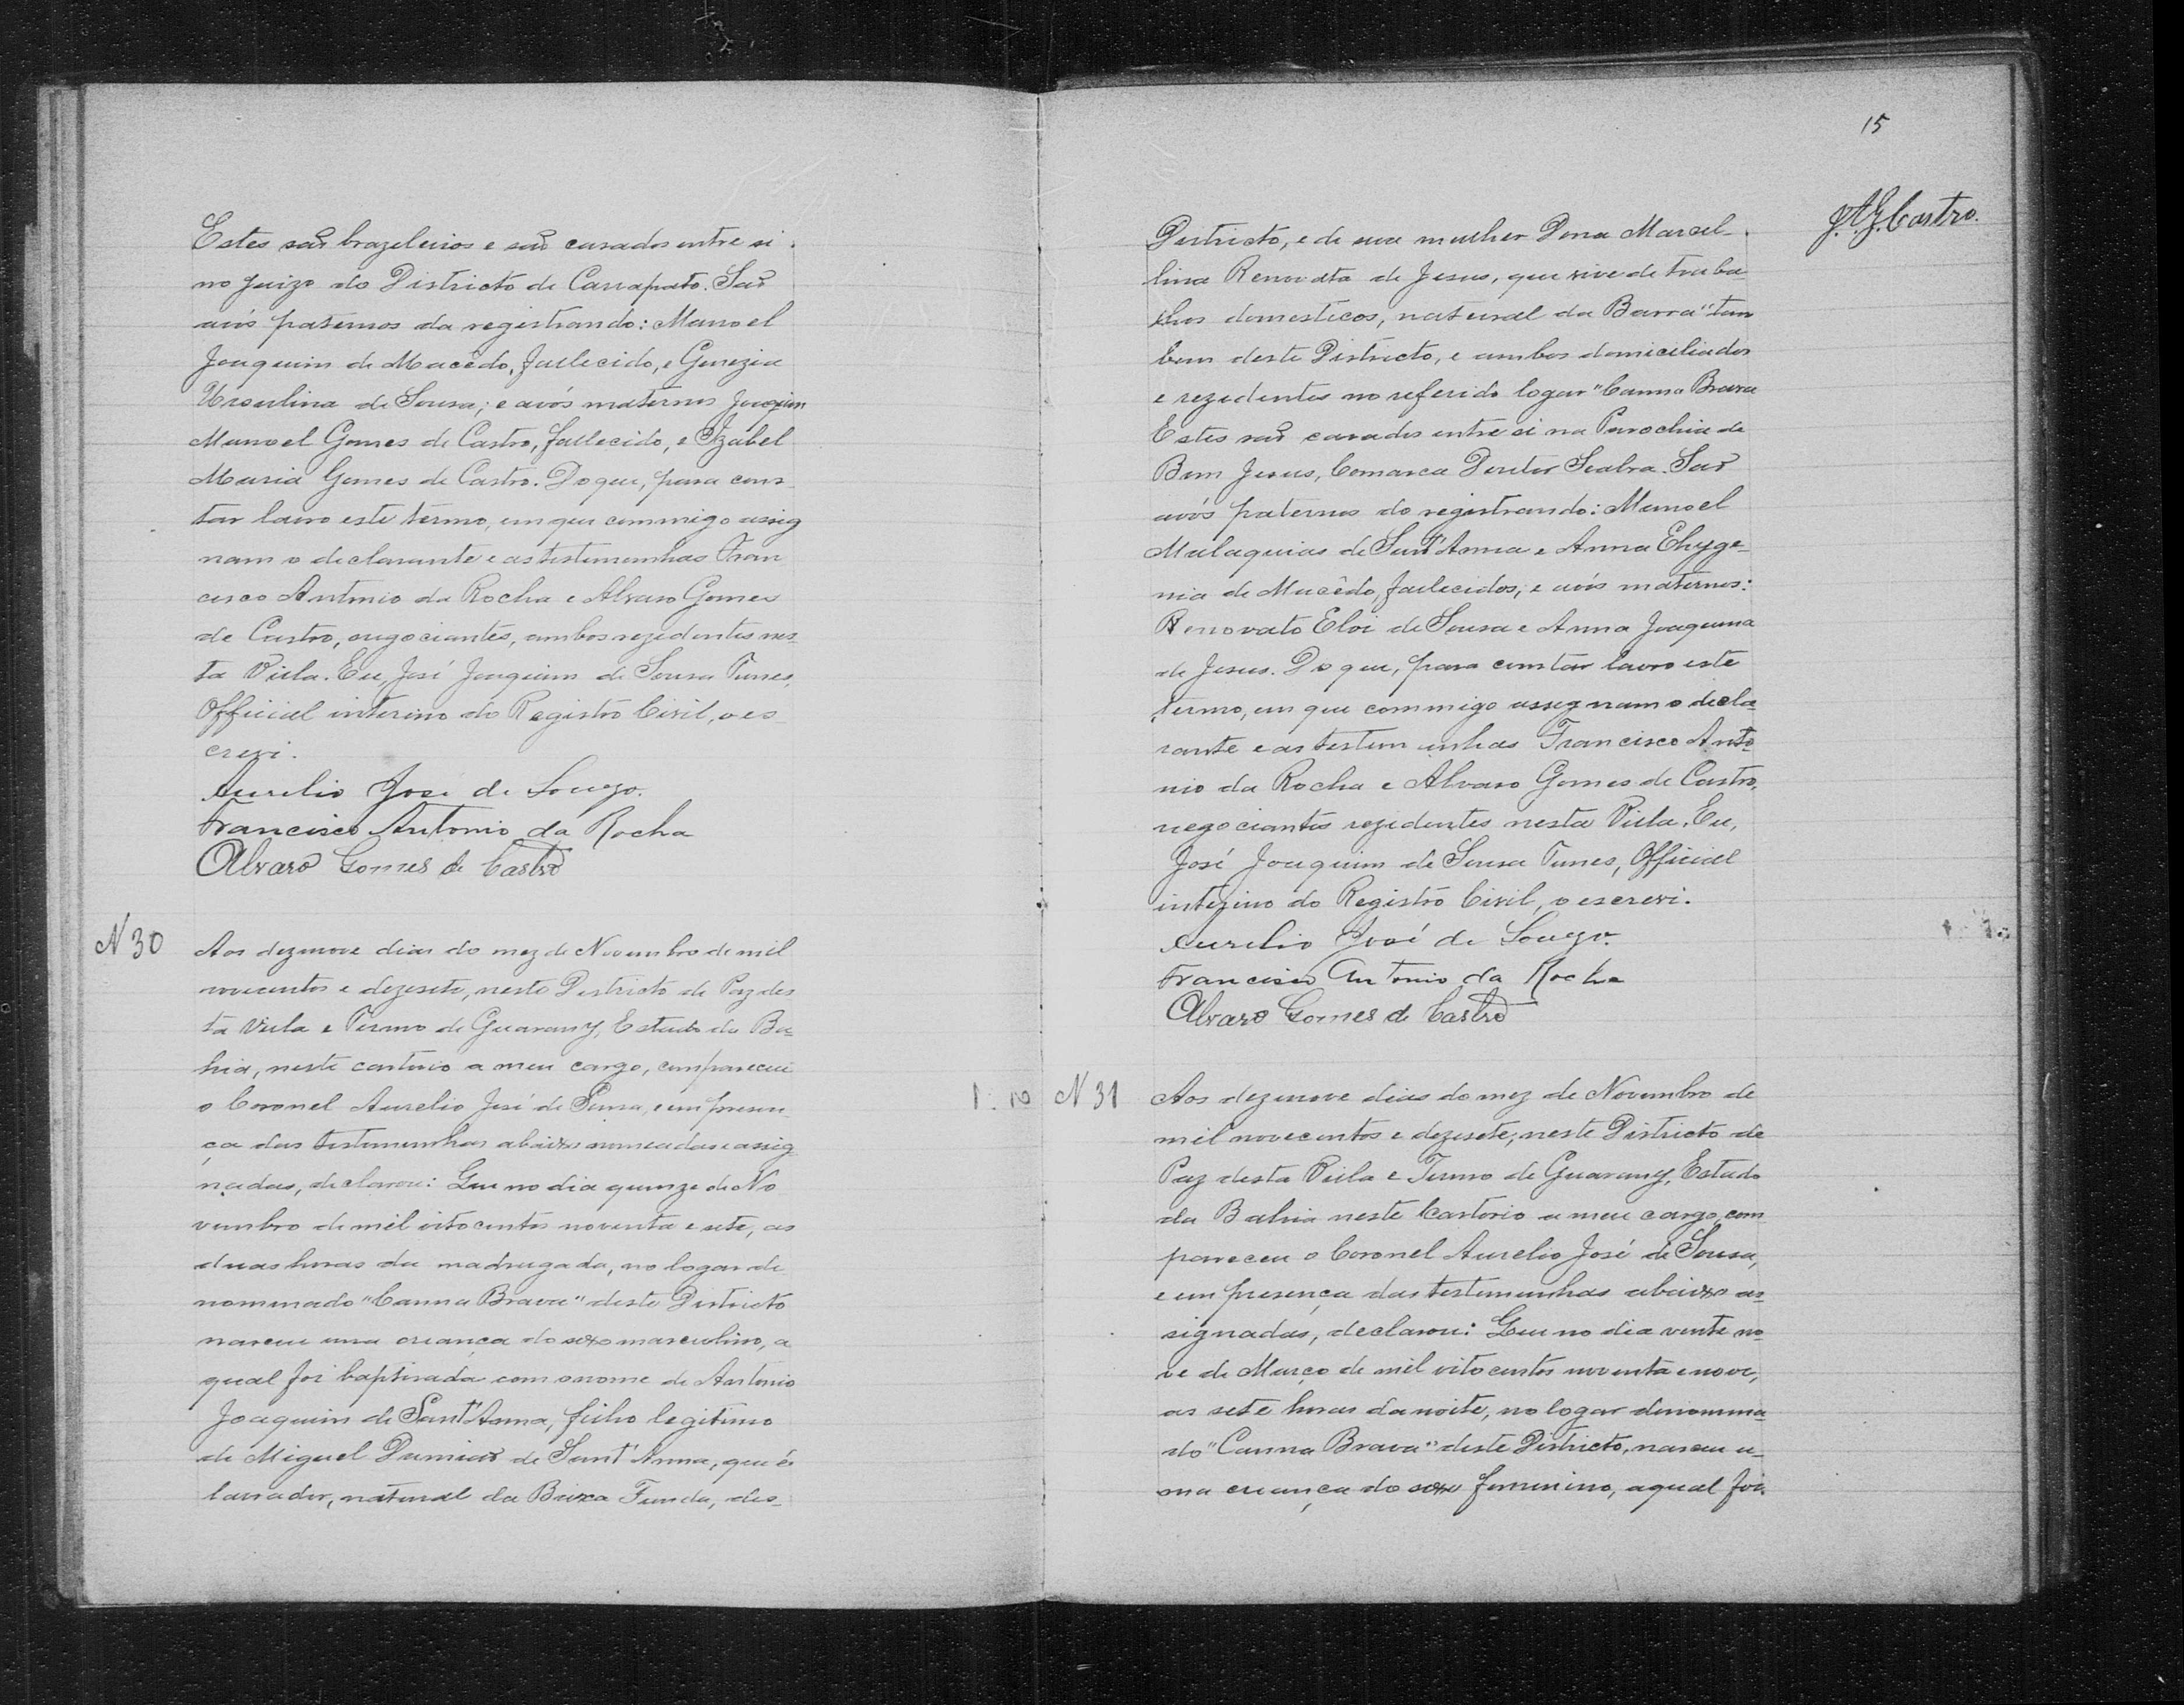 Estes são brazileiros e são casados entre si
no juizo do Districto de Carrapato. São
avós paternos da registranda: Manoel
Joaquim de Macêdo, fallecido, e Generzia
Ursulina de Sousa; e avós maternos Joaquim
Manoel Gomes de Castro, fallecido, e Izabel
Maria Gomes de Castro. Do que, para cons-
tar lavro este termo, em que commigo assig
nam o declarante e as testemunhas Fran
cisco Antonio da Rocha e Alvaro Gomes
de Castro, negociantes, ambos rezidentes nes-
ta Villa. Eu, José Joaquim de Sousa Tunes,
Official interino do Registro Civil, o es-
crevi.
Aurelio José de Souza.
Francisco Antonio da Rocha
Alvaro Gomes de Castro
N 30
Aos dezenove dias do mez de Novembro de mil
novecentos e dezesete, neste Districto de Paz des
ta Villa e Termo de Guarany, Estado da Ba-
hia, neste cartorio a meu cargo, compareceu
o Coronel Aurelio José de Sousa, e em presen-
ça das testemunhas abaixo nomeadas e assig
nadas, declarou: Que no dia quinze de No
vembro de mil oitocentos noventa e sete, as
duas horas da madrugada, no logar de
nominado "Canna Brava" deste Districto
nasceu uma criança do sexo masculino, a
qual foi baptisada com o nome de Antonio
Joaquim de Sant'Anna, filho legitimo
de Miguel Damião de Sant'Anna, que é
lavrador, natural da Baixa Funda, des-
15
J. A. G. Castro.
Districto, e de sua mulher Dona Marcel-
lina Renovata de Jesus, que vive de traba
lhos domesticos, natural da Barra" tam
bem deste Districto, e ambos domiciliados
e rezidentes no referido logar "Canna Brava
Estes são casados entre si na Parochia de
Bom Jesus, Comarca Doutor Seabra. São
avós paternos do registrando: Manoel
Malaquias de Sant'Anna e Anna Ehyge-
nia de Macêdo, fallecidos; e avós maternos:
Renovato Eloi de Sousa e Anna Joaquina
de Jesus. Do que, para constar lavro este
termo, em que commigo assegnam o decla-
rante e as testemunhas Francisco Anto-
nio da Rocha e Alvaro Gomes de Castro,
negociantes rezidentes nesta Villa. Eu,
José Joaquim de Sousa Tunes, Official
interino do Registro Civil, o escrevi.
Aurelio José de Souza.
Francisco Antonio da Rocha
Alvaro Gomes de Castro
N 31
Aos dezenove dias do mez de Novembro de
mil novecentos e dezesete, neste Districto de
Paz desta Villa e Termo de Guarany, Estado
da Bahia neste Cartorio a meu cargo, com
pareceu o Coronel Aurelio José de Sousa,
e em presença das testemunhas abaixo as-
signadas, declarou: Que no dia vinte no-
ve de Março de mil oitocentos noventa e nove,
as sete horas da noite, no logar denomina-
do "Canna Brava" deste Districto, nasceu u-
ma criança do sexo feminino, a qual foi